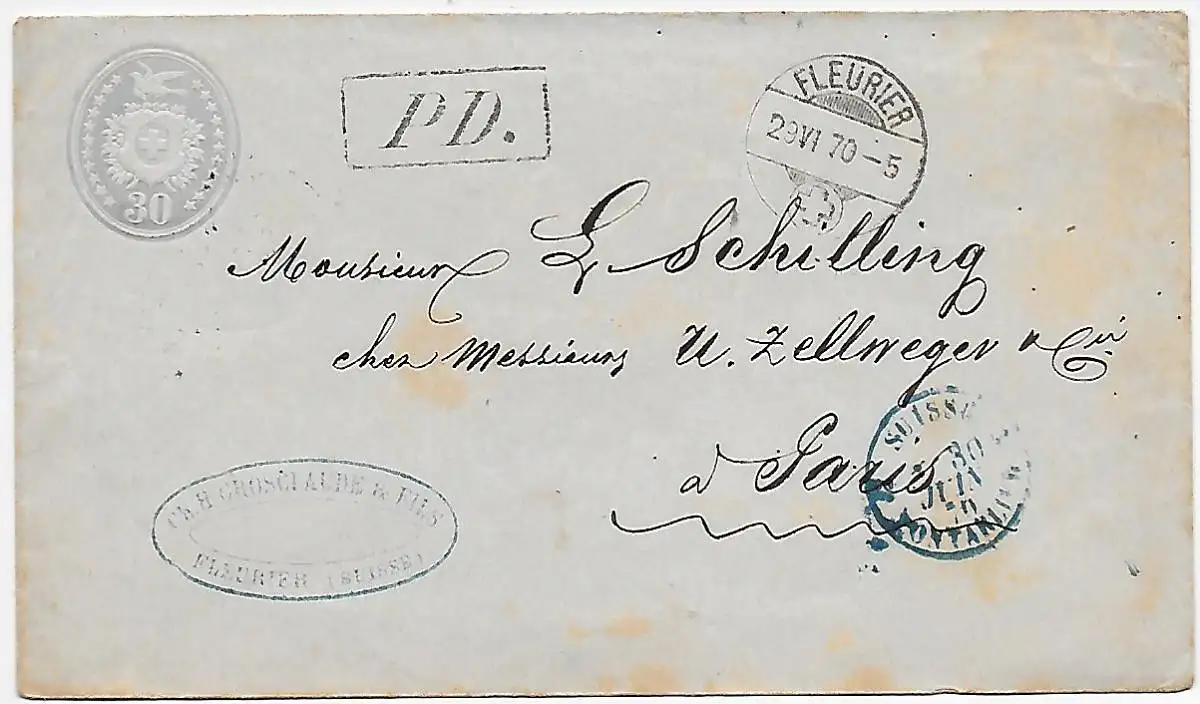 30
PD.
FLEURIER
29 VI 70-5
Monsieur L Schilling
chez Messieurs U. Zellweger & Cie
à Paris
SUISSE
30
JUIN
70
PONTARLIER
Ch. H GROSCLAUDE & FILS
FLEURIER (SUISSE)